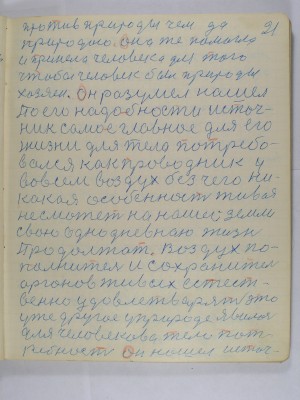 против природы чем да 21
природою. Она же помогла
и привела человека для того
чтобы человек был природы
хозяин. Он разумел нашел
по его надобности источ-
ник самое главное для его
жизни для тела потребо-
вался как проводник у
вовсем воздух без чего ни-
какая особенност живая
не сможет на нашей земли
свою однодневнаю жизн
продолжат. Воздух по-
полнител и сохранител
арганов живых естест-
венно удовлетварят это
уже другое у природе явилас
для человекова тела пот-
ребност Он нашел источ-